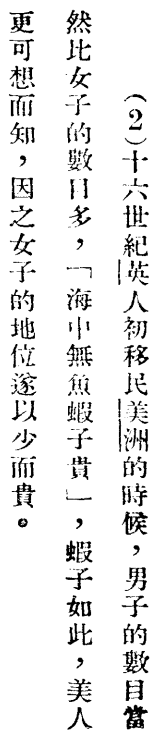 （2）十六世紀英人初移民美洲的時候，男子的數目當
然比女子的數目多，「海中無魚蝦子貴」，蝦子如此，美人
更可想而知，因之女子的地位遂以少而貴。